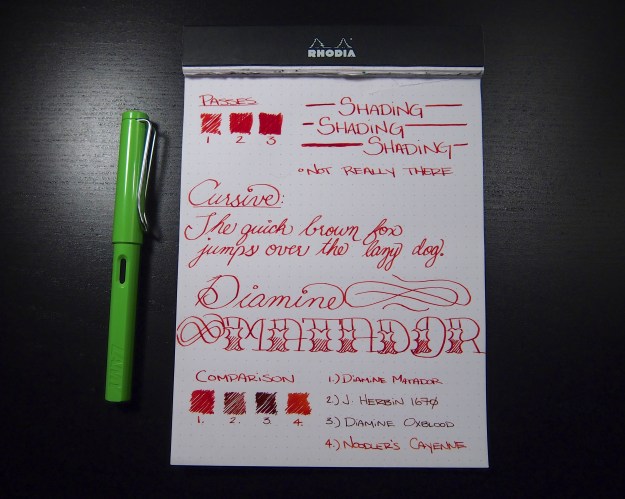 RHODIA
PASSES
1 2 3
SHADING
SHADING
SHADING
NOT REALLY THERE
Cursive:
The quick brown fox
jumps over the lazy dog.
Diamine
MATADOR
COMPARISON
1. 2. 3. 4.
1.) DIAMINE MATADOR
2.) J. HERBIN 1670
3.) DIAMINE OXBLOOD
4.) NOODLER'S CAYENNE
LAMY